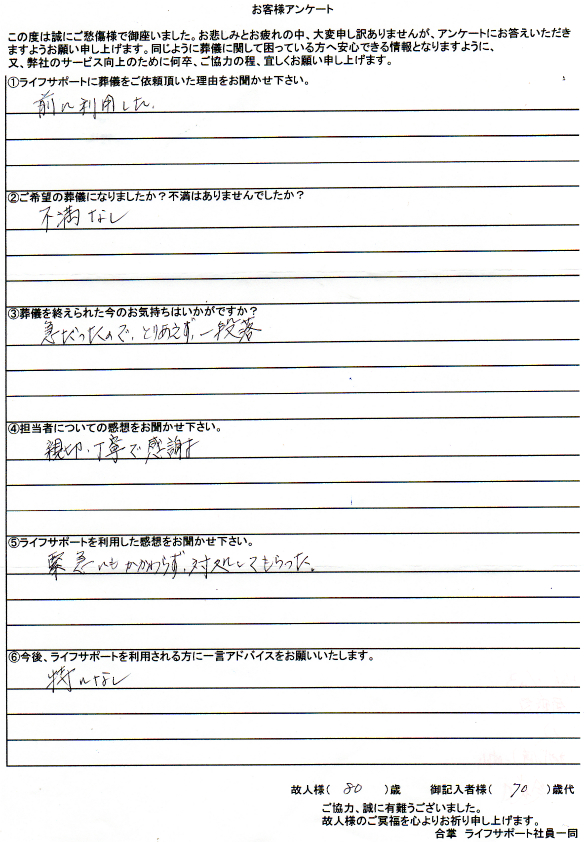 お客様アンケート
この度は誠にご愁傷様で御座いました。お悲しみとお疲れの中、大変申し訳ありませんが、アンケートにお答えいただき
ますようお願い申し上げます。同じように葬儀に関して困っている方へ安心できる情報となりますように、
又、弊社のサービス向上のために何卒、ご協力の程、宜しくお願い申し上げます。
①ライフサポートに葬儀をご依頼頂いた理由をお聞かせ下さい。
前に利用した.
②ご希望の葬儀になりましたか？不満はありませんでしたか？
不満なし
③葬儀を終えられた今のお気持ちはいかがですか？
急だったので、とりあえず、一段落
④担当者についての感想をお聞かせ下さい。
親切、丁寧で感謝す
⑤ライフサポートを利用した感想をお聞かせ下さい。
緊急にもかかわらず、対処してもらった。
⑥今後、ライフサポートを利用される方に一言アドバイスをお願いいたします。
特になし
故人様( 80 )歳 御記入者様( 70 )歳代
ご協力、誠に有難うございました。
故人様のご冥福を心よりお祈り申し上げます。
合掌 ライフサポート社員一同